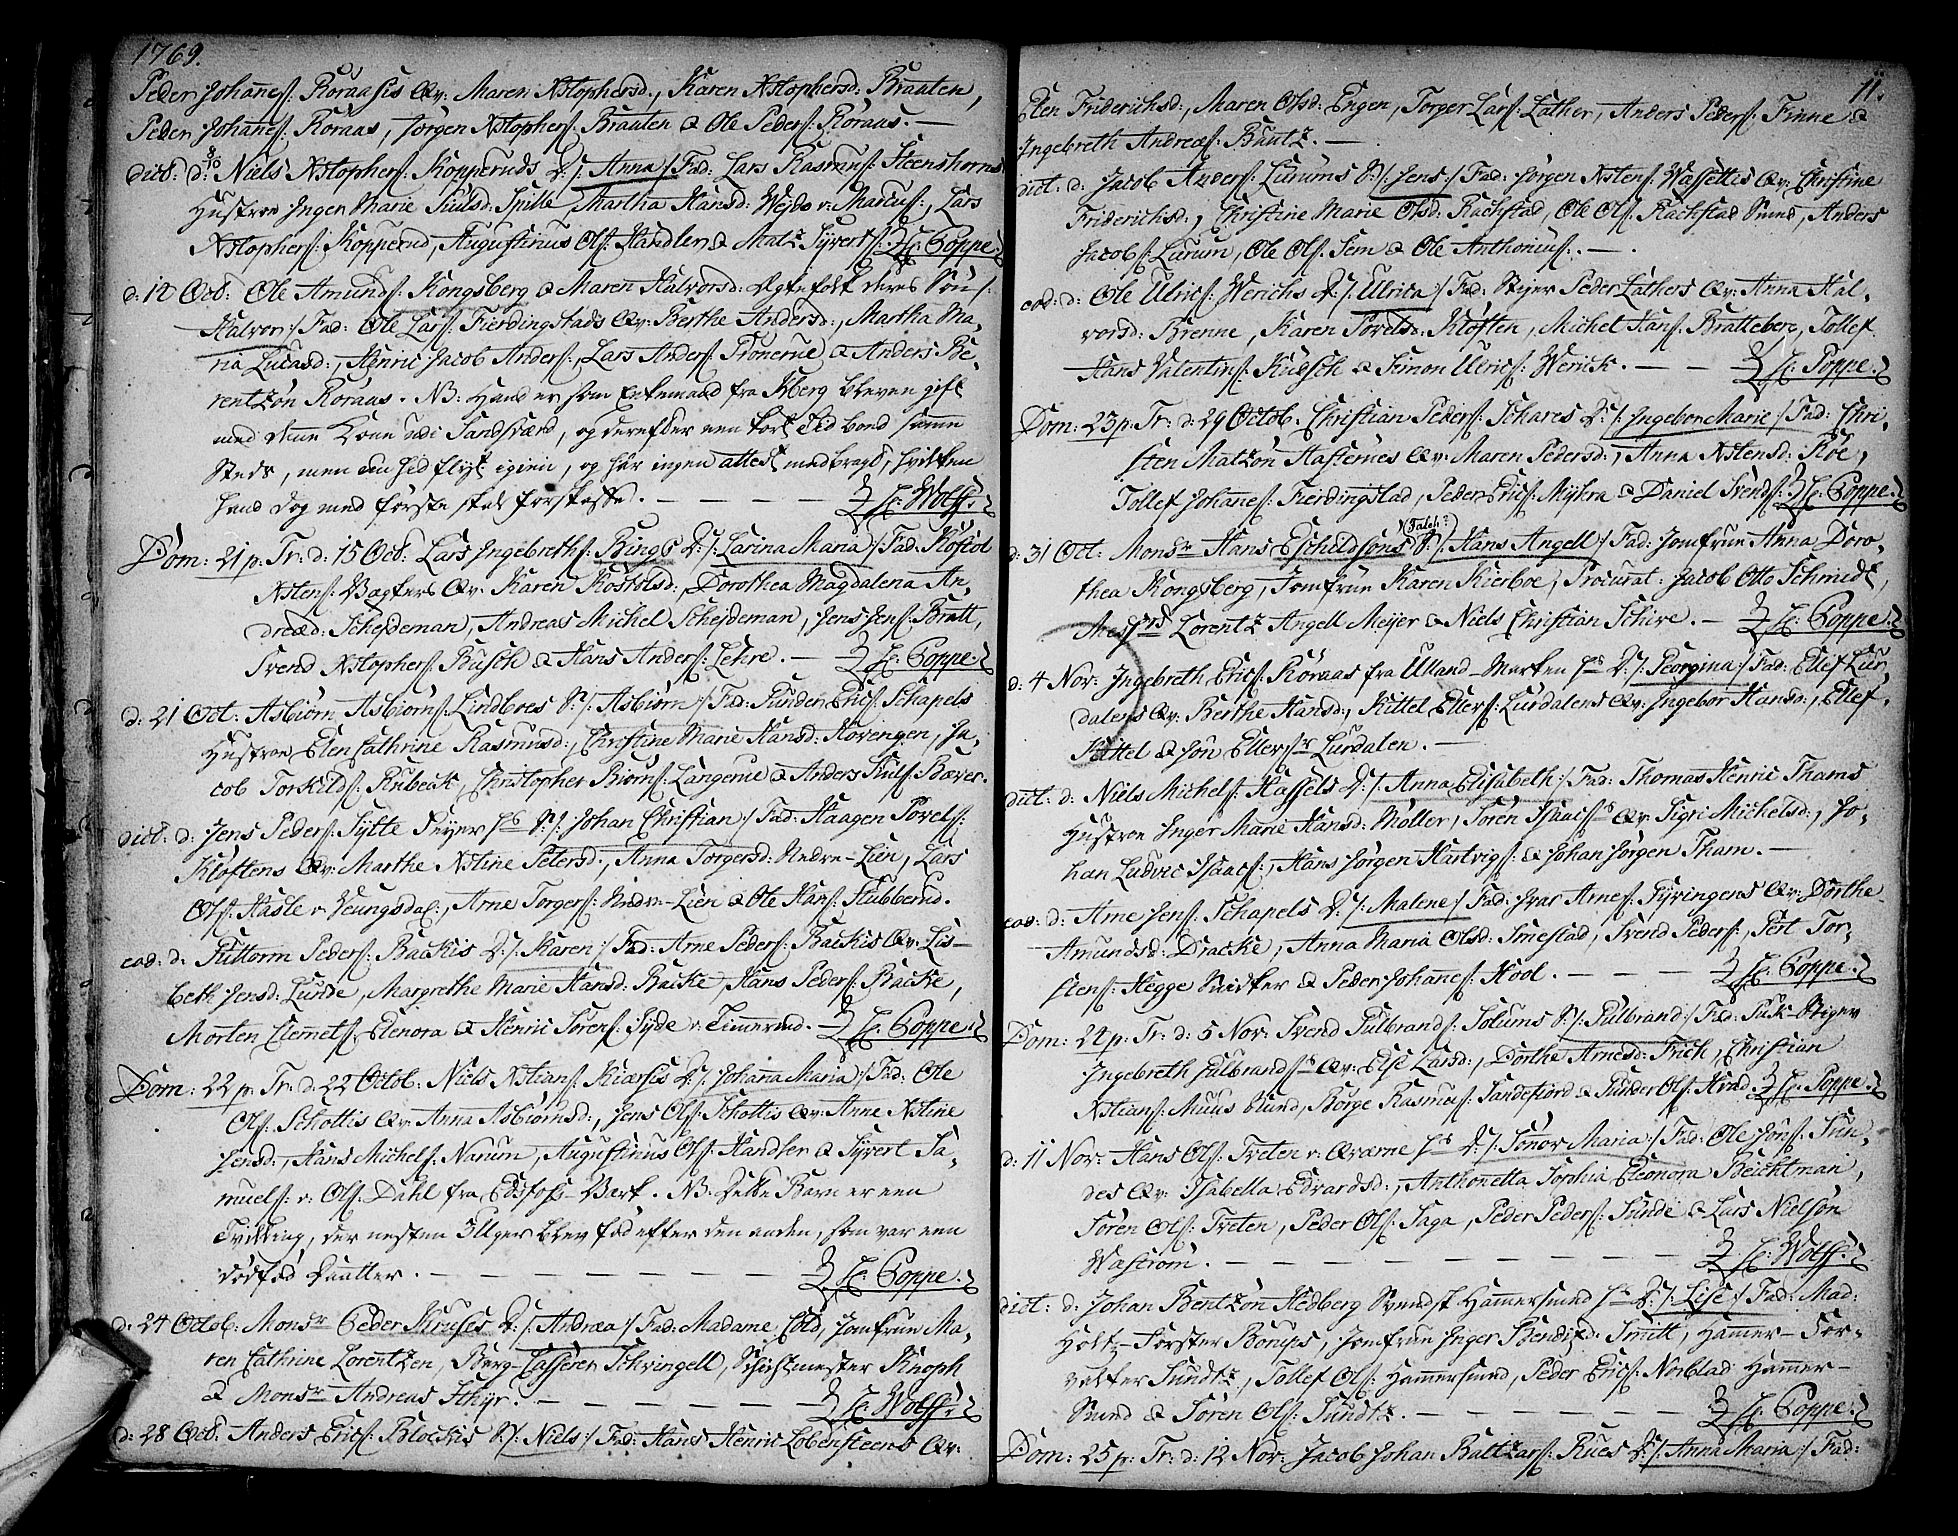 1769.
Peder Johañesſ: Roraasis Qv: Maren Xstophersd:, Karen Xstophersd: Braaten,
Peder Johañesſ: Roraas, Jørgen Xstophersſ: Braaten & Ole Pedersſ: Roraas. —
dict: d: Niels Xstophersſ: Kopperuds D: /: Anna :/ Fad: Lars Rasmusſ: Steenshorns
Hustroe Inger Marie Pouls d: Spitte, Martha Hansd: Wejdo v: Marcus:, Lars
Xstophersſ: Kopperud, Augustinus Olsſ: Handler & Matz Syvertsſ: H: Poppe.
d: 12 Octb: Ole Amundsſ: Kongsberg & Maren Halvorsd: Ægtefolk deres Søn /:
Halvor :/ Fad: Ole Larsſ: Fierdingstads Qv: Berthe Andersd:, Martha Ma-
ria Lucasd:, Henric Jacob Andersſ:, Lars Andersſ: Tronerue & Anders Be-
rentzøn Roraas. NB: Hand er som Enkemand fra Kberg bleven gift
med denne Kone udi Sandsværd, og derefter een kort Tid boed samme
Steds, men en hid flyt igien, og har ingen attest medbragt, hvilken
hand dog med første skal forskaffe. — — — H: Wolff.
Dom: 21 p: Tr: d: 15 Octb: Lars Ingebrethsſ: Bings D: /: Carina Maria :/ Fad: Kostol
Xstensſ: Vagters Qv: Karen Kostolsd:, Dorothea Magdalena An-
dreæd: Schejdeman, Andreas Michel Schejdeman, Jens Jensſ: Bratt,
Svend Xstophersſ: Rusch & Hans Andersſ: Lehre. — H: Poppe.
d: 21 Oct: Asbiørn Asbiørnsſ: Lindboes S: /: Asbiørn :/ Fad: Gunder Ericsſ: Schapels
Hustroe Elen Cathrine Rasmusd:, Christine Marie Hansd: Korengen, Ja-
cob Torkildsſ: Rubeck, Christopher Biørnsſ: Langerue & Anders Pouls: Bæver.
dict: d: Jens Pedersſ: Sylte Pejer hs S: /: Johan Christian :/ Fad: Haagen Povelsſ:
Kloftens Qv: Marthe Xstine Petersd:, Anna Torgersd: Nedre-Lien, Lars
Olsſ: Hasle v: Jeungsdal:, Arne Torgersſ: Nedre-Lien & Ole Hansſ: Stubberud.
eod: d: Guttorm Pedersſ: Backis D: /: Karen :/ Fad: Arne Pedersſ: Backis Qv: Lis-
beth Jensd: Lunde, Margrethe Marie Hansd: Backe, Hans Pedersſ: Backe,
Morten Clemetsſ: Elenora & Henric Sørensſ: Syde v: Timerud. — H: Poppe.
Dom: 22 p: Tr: d: 22 Octob: Niels Xstiansſ: Kiærsis D: /: Johaña Maria :/ Fad: Ole
Olsſ: Schottis Qv: Anna Asbiørnsd:, Jens Olsſ: Schottis Qv: Anne Xstine
Jensd:, Hans Michelsſ: Narum, Augustinus Olsſ: Handler & Syvert Sa-
muelsſ: v: Olsſ: Dahl fra Edsfoss-Værk. NB: Dette Barn er een
Tvilling, der nesten 3 Uger blev fød efter den anden, som var een
dødfød Daatter. — — — — — — — H: Poppe.
d: 24 Octob: Monsr Peder Kruses D: /: Andræa :/ Fad: Madame Cold, Jomfrue Ma-
ren Cathrine Lorentzen, Berg-Casserer Schringell, Schichtmester Knoph
& Monsr Andreas Sthyr. — — — — — — H: Wolff.
d: 28 Octb: Anders Ericsſ: Blockis S: /: Niels :/ Fad: Hans Henric Lobensteens Qv:
11.
Elen Friderichsd:, Maren Olsd: Engen, Torger Larsſ: Lather, Anders Pedersſ: Finne &
Ingebreth Andreæsſ: Buutz. —
dict: d: Jacob Andersſ: Lurums S: /: Jens :/ Fad: Jørgen Xstensſ: Wassettis Qv: Christine
Friderichsd:, Christine Marie Olsd: Rachstad, Ole Olsſ: Rachstad Smed, Anders
Jacobsſ: Lurum, Ole Olsſ: Sem & Ole Anthonisſ: —.
eod: d: Ole Ulricsſ: Werichs D: /: Ulrica :/ Fad: Stejer Peder Lathers Qv: Anna Hal-
vorsd: Brenne, Karen Povelsd: Kloften, Michel Hansſ: Bratteberg, Tollef
Hans Valentinsſ: Kubsch & Simon Ulricsſ: Werick. — — H: Poppe.
Dom: 23 p: Tr: d: 29 Octob. Christian Pedersſ: Schares D: /: Ingebor Marie :/ Fad: Chri-
sten Matzøn Hafternes Qv: Maren Pedersd:, Anna Xstensd: Roe,
Tollef Johañesſ: Fierdingstad, Peder Ericsſ: Myhra & Daniel Svendsſ: H: Poppe.
(Falch?)
d: 31 Oct: Monsr Hans Escheldsøns S: /: Hans Angell :/ Fad: Jomfrue Anna Doro-
thea Kongsberg, Jomfrue Karen Kierboe, Procurat: Jacob Otto Schmidt,
Messrs Lorentz Angell Meyer & Niels Christian Schive. — H: Poppe.
d: 4 Nov: Ingebreth Ericsſ: Roraas fra Ulland-Marken hs D: /: Georgina :/ Fad: Ellef Lur-
dalens Qv: Berthe Hansd:, Kittel Ellefsſ: Lurdalens Qv: Ingebor Hansd:, Ellef,
Kittel & Jon Ellefsſr Lurdalen. —
dict: d: Niels Michelsſ: Hassels D: /: Anna Elisabeth :/ Fad: Thomas Henric Thams
Hustroe Inger Marie Hansd: Møller, Søren Isaacsſs Qv: Sigri Michelsd:, Jo-
han Ludvic Isaacsſ:, Hans Jørgen Hartvigsſ: & Johan Jørgen Tham. —
eod: d: Arne Jensſ: Schapels D: /: Malene :/ Fad: Ivar Arnesſ: Tyvingens Qv: Dorthe
Amundsd: Dracke, Anna Maria Olsd: Smestad, Svend Pedersſ:, Pert Tor-
stensſ: Hegge Snidker & Peder Johañesſ: Hool. — — — H: Poppe.
Dom: 24 p: Tr: d: 5 Nov: Svend Gulbrandsſ: Solums S: /: Gulbrand :/ Fad: Puk-Stiger
Ingebreth Gulbrandsſs Qv: Else Larsd:, Dorthe Arnesd: Frich, Christian
Xstiansſ: Muus Kund, Børge Rasmusſ: Sandefiord & Gunder Olsſ: Hvad H: Poppe.
d: 11 Nov: Hans Olsſ: Tveten v: Qværne hs D: /: Sonor Maria :/ Fad: Ole Jonsſ: Tun-
des Qv: Isabella Edvardsd:, Anthonetta Sophia Eleonora Fleichtman,
Søren Olsſ: Tveten, Peder Olsſ: Saga, Peder Pedersſ: Lunde & Lars Nielsøn
Wastrøm. — — — — — — — — — H: Wolff.
dict: d: Johan Bentzøn Hedberg Svends: Hamersmed hs D: /: Lise :/ Fad: Mad:
Holtz-Førster Borups, Jomfrue Inger Bendixd: Smitt, Hamer-For-
valter Sundtz, Tollef Olsſ: Hamersmed, Peder Ericsſ: Norblad Hamer-
Smed & Søren Olsſ: Sundtz. — — — — — H: Poppe.
Dom: 25 p: Tr: d: 12 Nov: Jacob Johan Baltzarsſ: Rues D: /: Anna Maria :/ Fad: